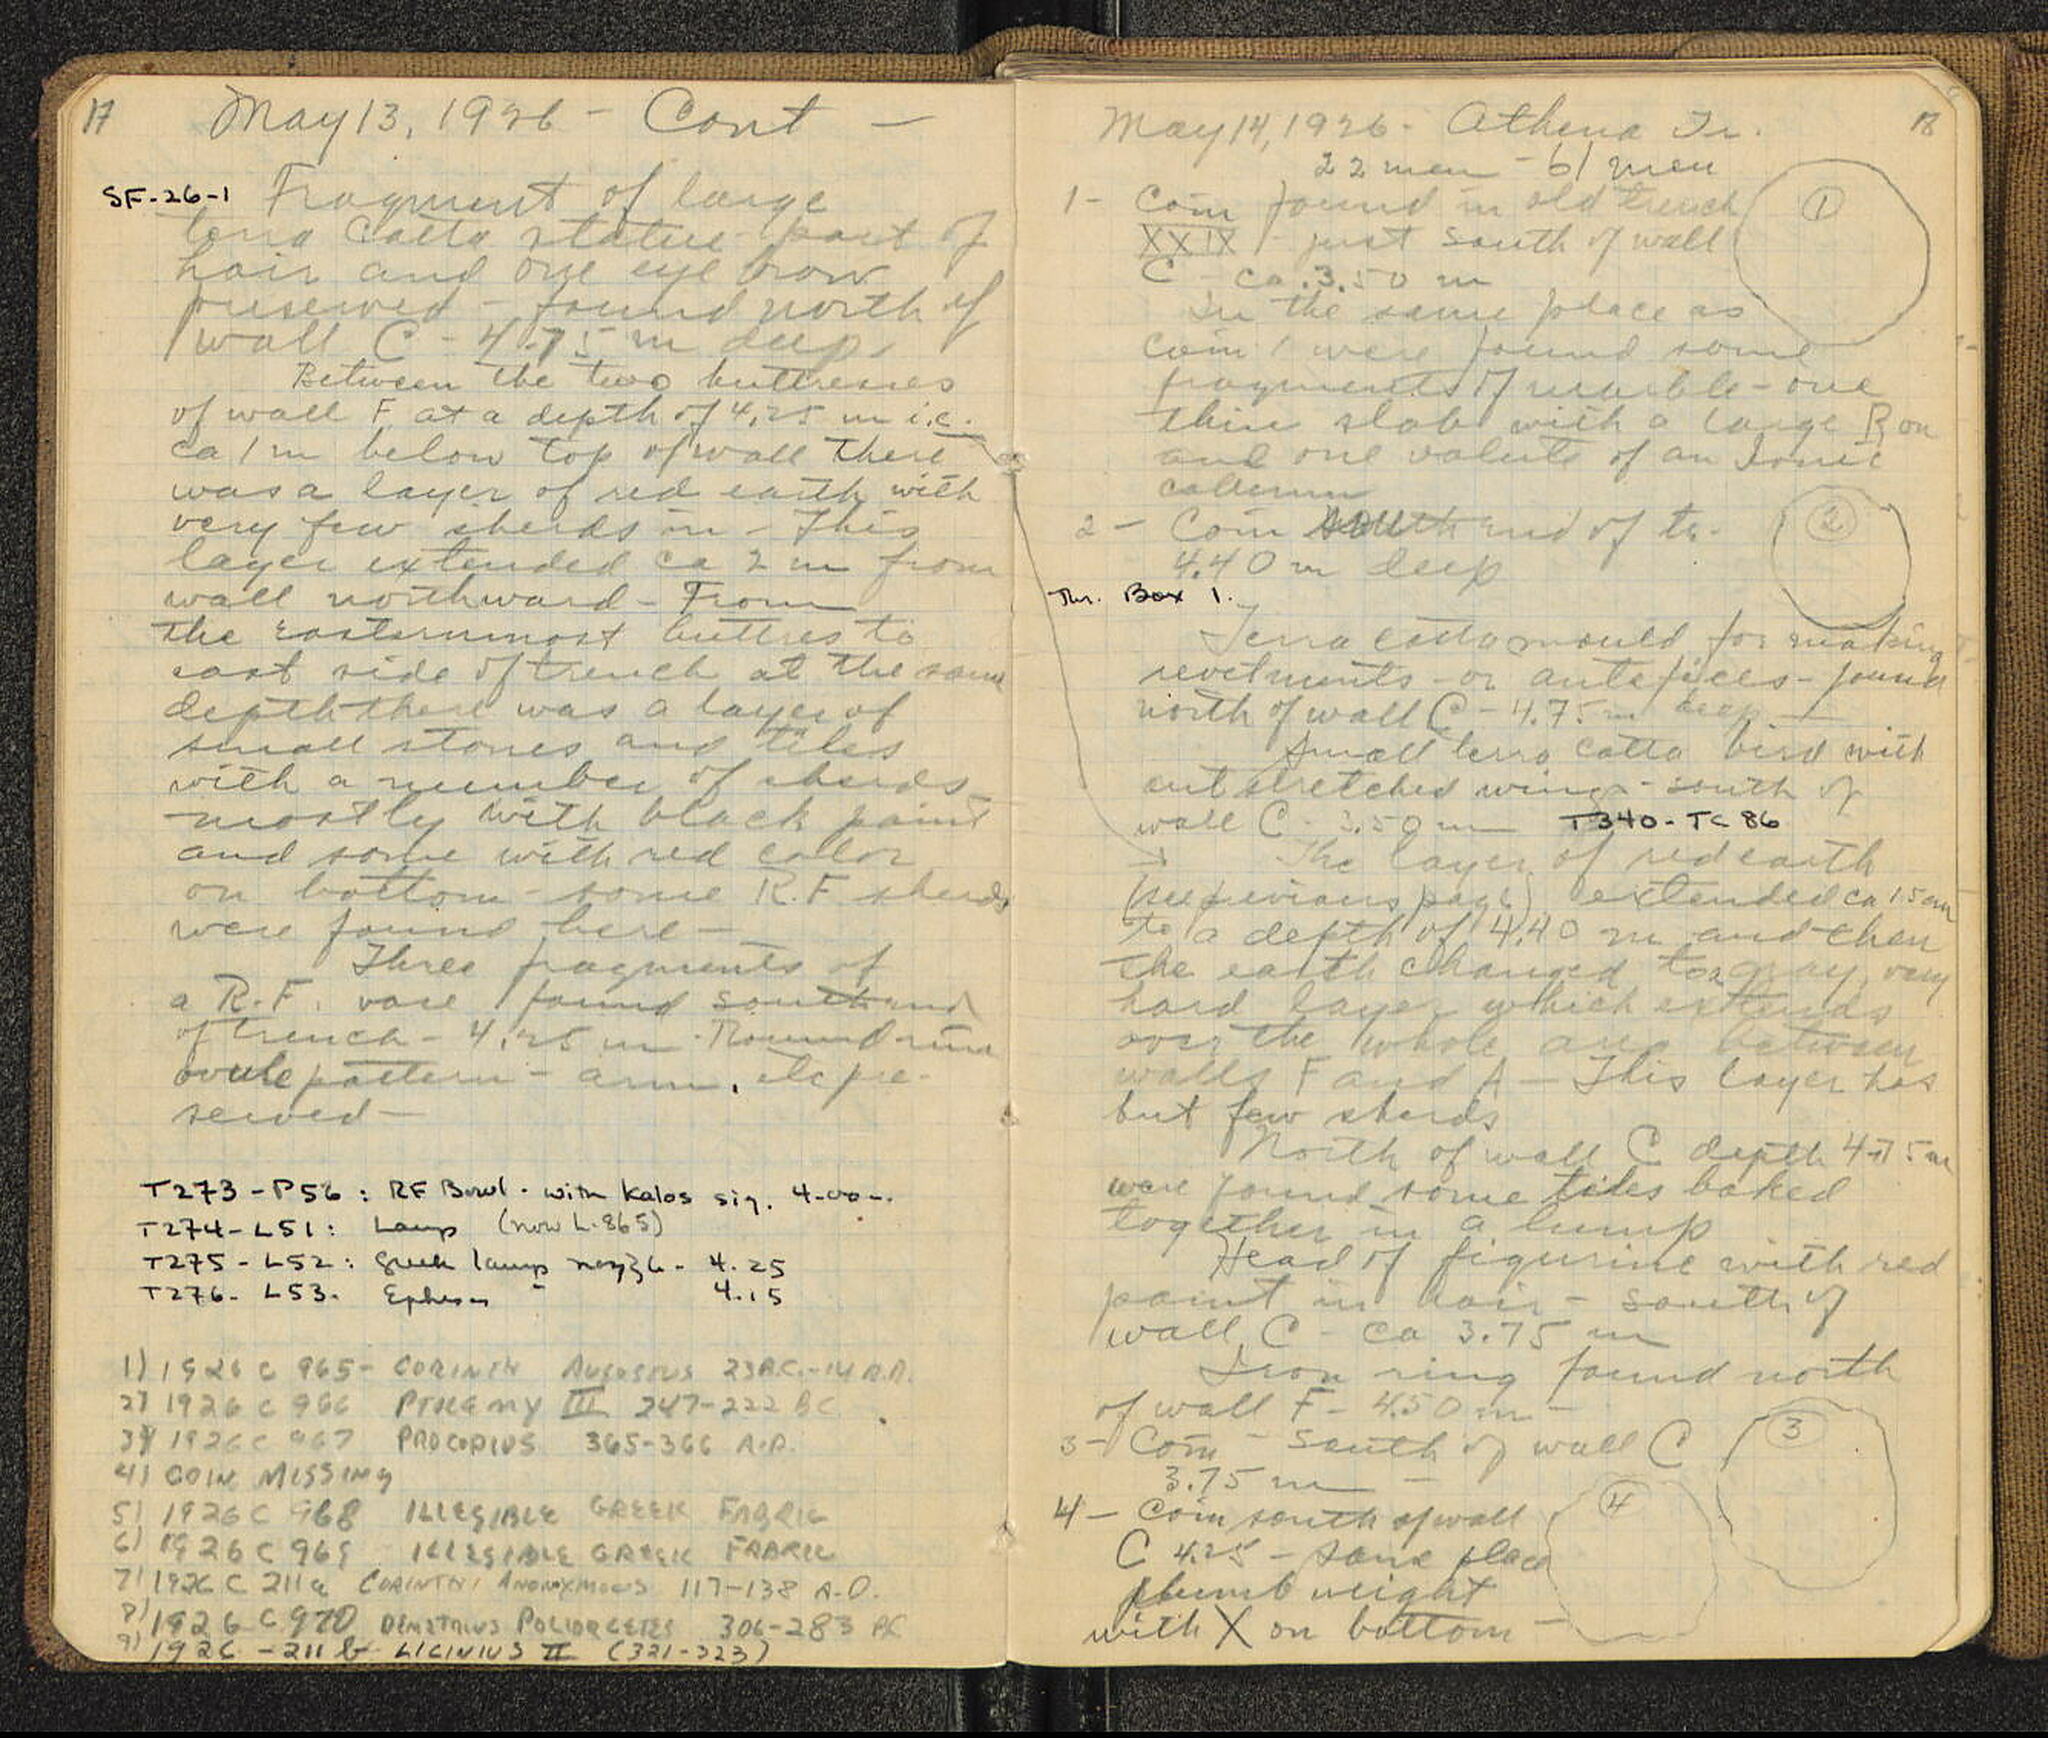 17
May 13, 1926 - Cont -
SF-26-1 Fragment of large
terra Cotta statue - part of
hair and one eye brow
preserved - found north of
wall C - 4.75 m deep
Between the two buttresses
of wall F at a depth of 4.25 m i.e.
ca 1 m below top of wall there
was a layer of red earth with
very few sherds in - This
layer extended ca 2 m from
wall northward - From
the easternmost buttres to
east side of trench at the same
depth there was a layer of
small stones and tiles
with a number of sherds
mostly with black paint
and some with red color
on bottom - some R.F sherds
were found here -
Three fragments of
a R.F. vase found south end
of trench - 4.25 m - Round rim
ovule pattern - arm, etc pre-
served -
T273 - P56 : RF Bowl - with Kalos sig. 4-00-.
T274 - L51 : Lamp (now L.865)
T275 - L52 : Greek lamp 4.25
T276 - L53. Ephesus " 4.15
1) 1926 C 965 - CORINTH AUGUSTUS 23 B.C.-14 A.D.
2) 1926 C 966 PTOLEMY III 247-222 BC
3) 1926 C 967 PROCOPIUS 365-366 A.D.
4) COIN MISSING
5) 1926 C 968 ILLEGIBLE GREEK FABRIC
6) 1926 C 969 ILLEGIBLE GREEK FABRIC
7) 1926 C 211a CORINTH, ANONYMOUS 117-138 A.D.
8) 1926 C 970 DEMETRIUS POLIORCETES 306-283 BC
9) 1926 - 211 b LICINIUS II (321-323)
May 14, 1926 - Athena Tr. 18
22 men - 61 men
1 - Coin found in old trench ①
XXIX - just south of wall
C - ca. 3.50 m
In the same place as
coin 1 were found some
fragments of marble - one
thin slab with a large R on
and one volute of an Ionic
column
2 - Coin south end of tr. ②
4.40 m deep
Box 1.
Terra cotta mould for making
revetments - or antefixes - found
north of wall C - 4.75 m deep -
Small terra cotta bird with
outstretched wings - south of
wall C - 3.50 m T340 - TC 86
The layer of red earth
(see previous page) extended ca 15 cm
to a depth of 4.40 m and then
the earth changed to a gray, very
hard layer which extends
over the whole area between
walls F and A - This layer has
but few sherds
North of wall C depth 4.75 m
were found some tiles baked
together in a lump
Head of figurine with red
paint in hair - south of
wall C - ca 3.75 m
Iron ring found north
of wall F - 4.50 m -
3 - Coin - south of wall C ③
3.75 m -
4 - Coin south of wall ④
C 4.25 - same place
plumb weight
with X on bottom -